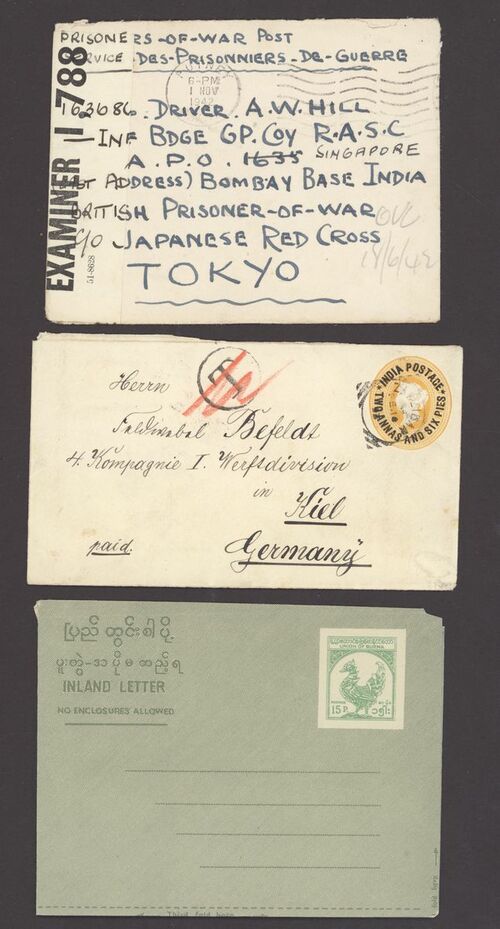 PRISONERS-OF-WAR POST
SERVICE DES-PRISONNIERS-DE-GUERRE
6-PM
1 NOV
1942
EXAMINER 1788
51-8628
163686. DRIVER. A.W. HILL
INF BDGE GP. COY R.A.S.C
A.P.O. 1635 SINGAPORE
ADDRESS) BOMBAY BASE INDIA
BRITISH PRISONER-OF-WAR
C/O JAPANESE RED CROSS
TOKYO
18/6/42
T
INDIA POSTAGE
TWO ANNAS AND SIX PIES
Herrn
Feldwebel Befeldt
4. Kompagnie I. Werftdivision
in
Kiel
paid.
Germany
ပြည်တွင်းစါပို့
INLAND LETTER
NO ENCLOSURES ALLOWED
UNION OF BURMA
POSTAGE
15 P.
၁၅ပြား
Third fold here